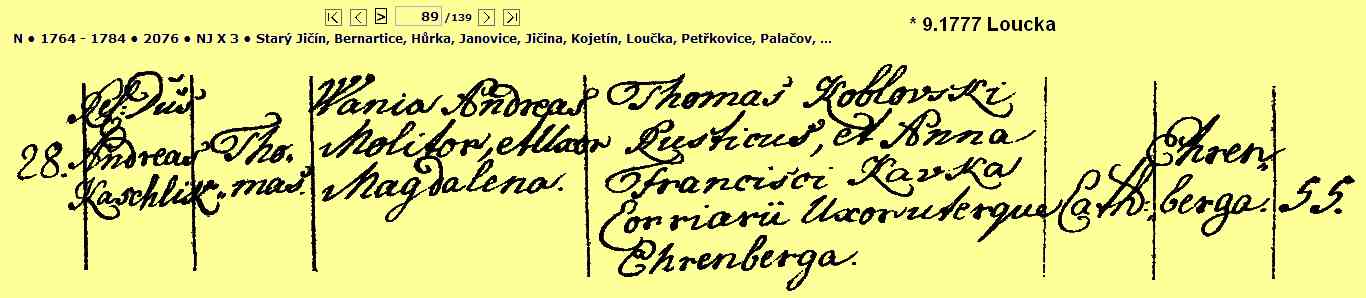 89 /139
* 9.1777 Loucka
N ● 1764 - 1784 ● 2076 ● NJ X 3 ● Starý Jičín, Bernartice, Hůrka, Janovice, Jičina, Kojetín, Loučka, Petřkovice, Palačov, ...
28.
Andreas
Kaschlik.
Tho.
mas.
Wania Andreas
Molitor, et Uxor
Magdalena.
Thomas Koblovski
Rusticus, et Anna
Francisci Kavka
Corriarii Uxor uterque
Ehrenberga.
Cath:
Ehren
berga.
55.